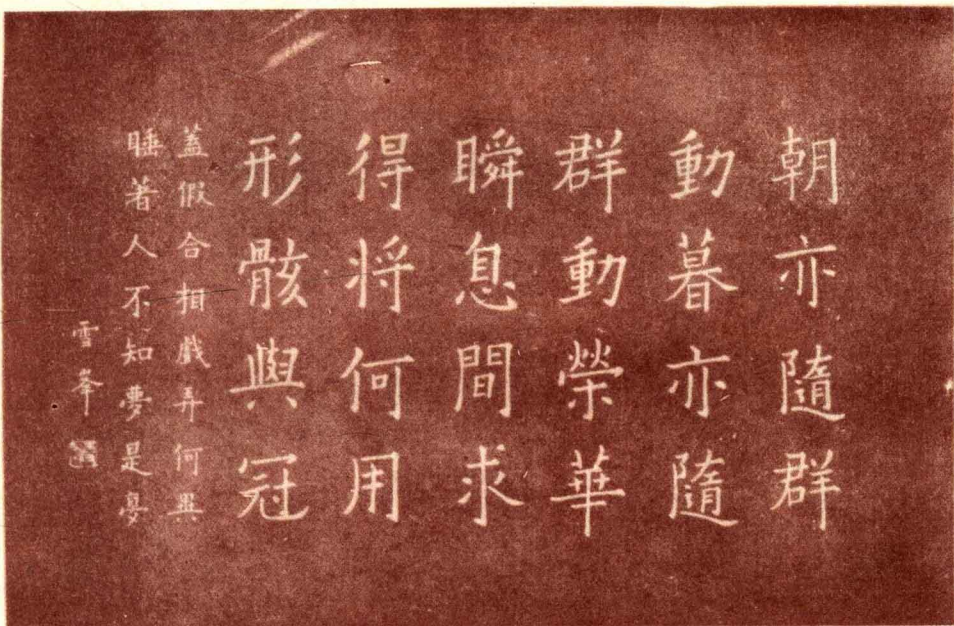 朝亦隨群
動暮亦隨
群動榮華
瞬息間求
得將何用
形骸與冠
蓋假合相戲弄何異
睡著人不知夢是夢
雪峯